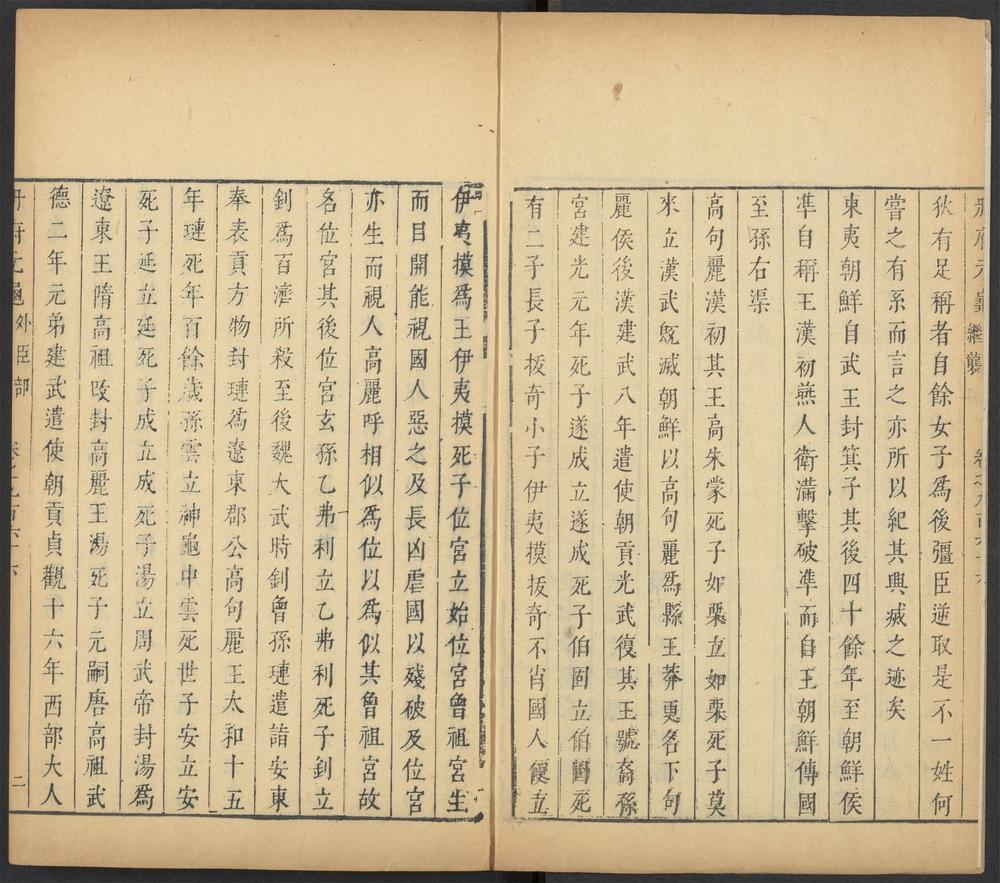 册府元龜繼襲 卷之九百六十六
狄有足稱者自餘女子爲後彊臣逆取是不一姓何
嘗之有系而言之亦所以紀其興滅之迹矣
東夷朝鮮自武王封箕子其後四十餘年至朝鮮侯
凖自稱王漢初燕人衛滿擊破凖而自王朝鮮傳國
至孫右渠
高句麗漢初其王高朱蒙死子如栗立如栗死子莫
來立漢武既滅朝鮮以高句麗爲縣王莽更名下句
麗侯後漢建武八年遣使朝貢光武復其王號裔孫
宮建光元年死子遂成立遂成死子伯固立伯固死
有二子長子拔奇小子伊夷摸拔奇不肖國人復立
伊夷摸爲王伊夷摸死子位宮立始位宮曾祖宮生
而目開能視國人惡之及長凶虐國以殘破及位宮
亦生而視人高麗呼相似爲位以爲似其曾祖宮故
名位宮其後位宮玄孫乙弗利立乙弗利死子釗立
釗爲百濟所殺至後魏太武時釗曾孫璉遣詣安東
奉表貢方物封璉爲遼東郡公高句麗王太和十五
年璉死年百餘歲孫雲立神龜中雲死世子安立安
死子延立延死子成立成死子湯立周武帝封湯爲
遼東王隋高祖改封高麗王湯死子元嗣唐高祖武
德二年元弟建武遣使朝貢貞觀十六年西部大人
册府元龜外臣部 卷之九百六十六 二